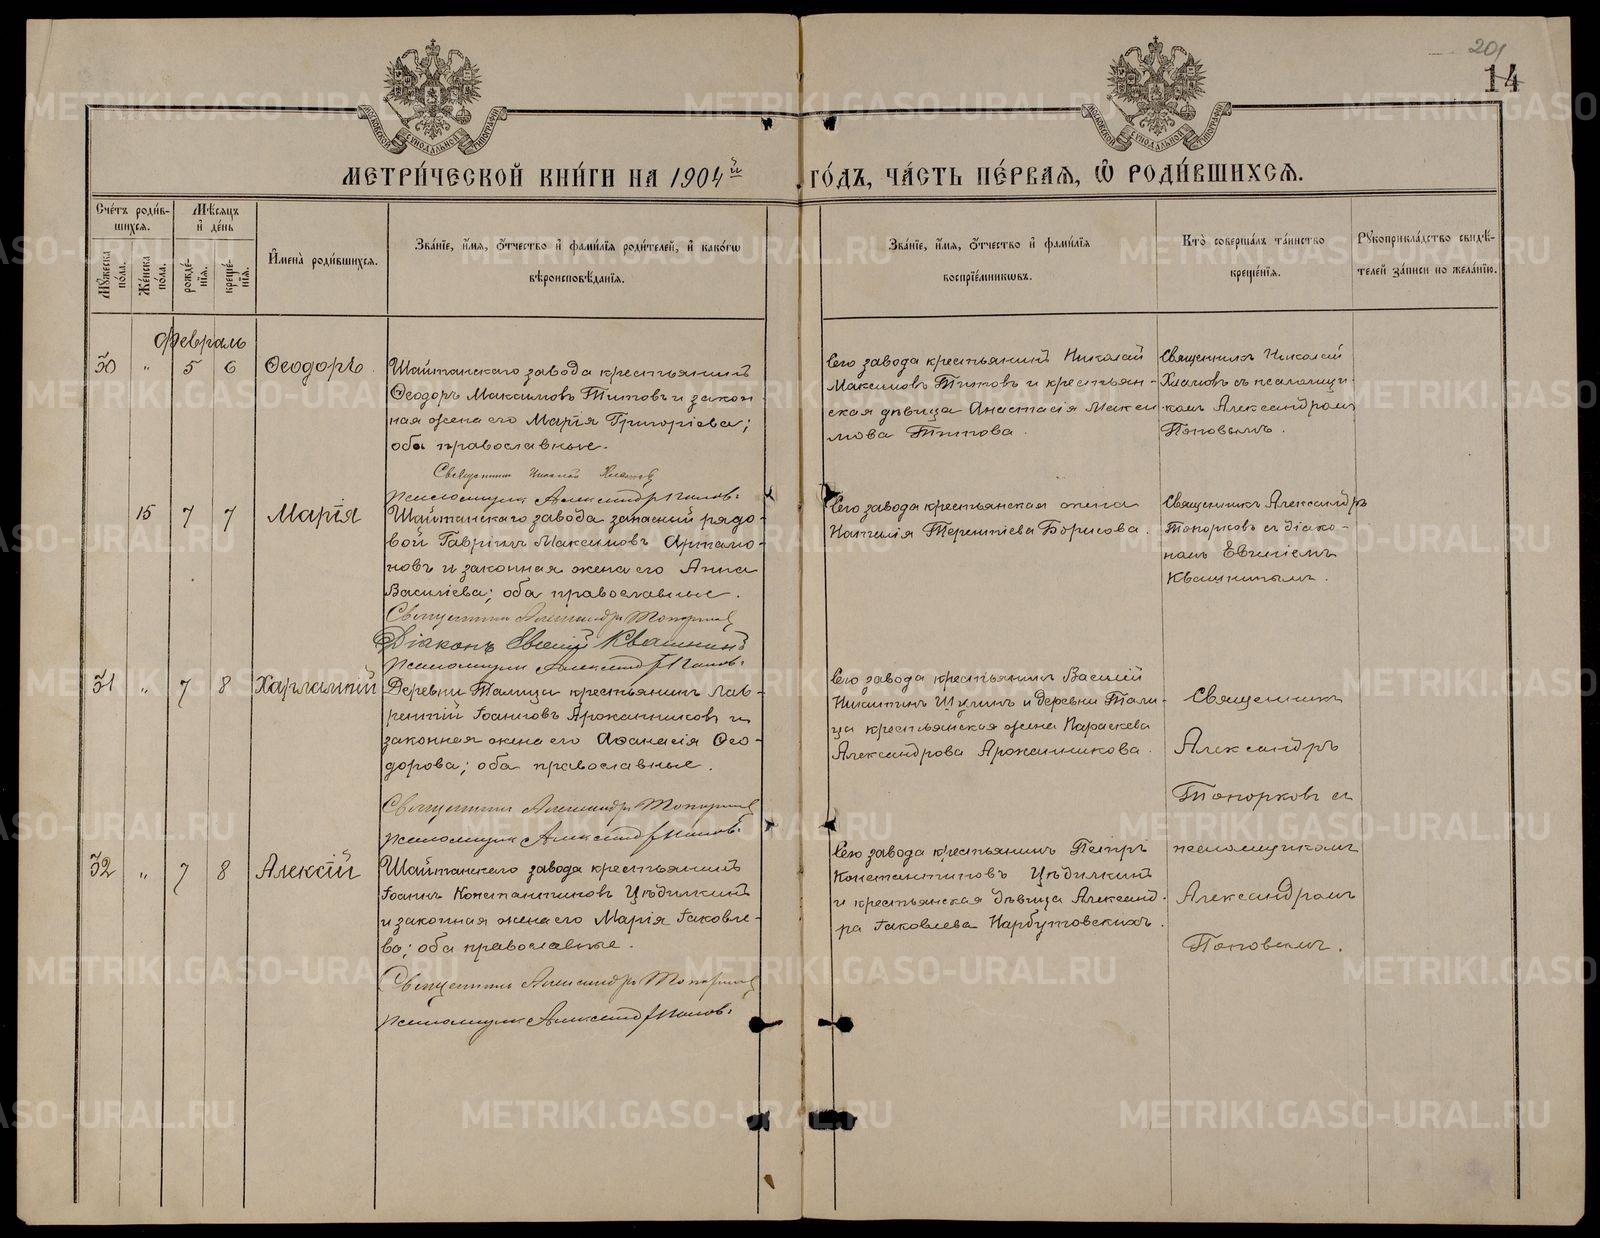 201
14
МОСКОВСКОЙ СѴНОДАЛЬНОЙ ТИПОГРАФІИ
МОСКОВСКОЙ СѴНОДАЛЬНОЙ ТИПОГРАФІИ
МЕТРИ́ЧЕСКОЙ КНИ́ГИ НА 1904й ГО́ДЪ, ЧА́СТЬ ПЕ́РВАѦ, Ѡ РОДИ́ВШИХСѦ.
Сче́тъ роди́в-
шихсѧ.
Мѣ́сѧцъ
и҆ де́нь
Мꙋ́жеска
по́ла.
Же́нска
по́ла.
рожде́-
нїѧ.
креще́-
нїѧ.
И҆мена̀ роди́вшихсѧ.
Зва́нїе, и҆́мѧ, ѻ҆́тчество и҆ фами́лїѧ роди́телей, и҆ како́гѡ
вѣроисповѣ́данїѧ.
Зва́нїе, и҆́мѧ, ѻ҆́тчество и҆ фами́лїѧ
воспрїе́мникѡвъ.
Кто̀ соверша́лъ та́инство
креще́нїѧ.
Рꙋкоприкла́дство свидѣ́-
телей за́писи по жела́нїю.
Февраль
30 " 5 6 Ѳеодоръ.
Шайтанскаго завода крестьянинъ
Ѳеодоръ Максимовъ Титовъ и закон-
ная жена его Марія Григоріева;
оба православные.
Священникъ Николай Хламовъ
Псаломщик Александр Попов.
Сего завода крестьянинъ Николай
Максимовъ Титовъ и крестьян-
ская дѣвица Анастасія Макси
мова Титова.
Священникъ Николай
Хламовъ съ псаломщи
комъ Александромъ
Поповымъ.
15 7 7 Марія
Шайтанскаго завода запасный рядо-
вой Гавріилъ Максимовъ Артамо-
новъ и законная жена его Анна
Василіева; оба православные.
Священникъ Александръ Топорковъ
Діаконъ Евгеній Квашнинъ
Псаломщик Александр Попов.
Сего завода крестьянская жена
Наталія Терентіева Борисова.
Священникъ Александръ
Топорковъ съ діако-
номъ Евгеніемъ
Квашнинымъ.
31 " 7 8 Харлампій
Деревни Талицы крестьянинъ Лав-
рентій Іоанновъ Аржанниковъ и
законная жена его Аѳанасія Ѳео-
дорова; оба православные.
Священникъ Александръ Топорковъ
Псаломщик Александр Попов.
Сего завода крестьянинъ Василій
Никитинъ Шулинъ и деревни Тали-
цы крестьянская жена Параскева
Александрова Аржанникова.
Священникъ
Александръ
Топорковъ съ
псаломщикомъ
Александромъ
Поповымъ.
32 " 7 8 Алексій
Шайтанскаго завода крестьянинъ
Іоаннъ Константиновъ Цѣдилкинъ
и законная жена его Марія Іаковле-
ва; оба православные.
Священникъ Александръ Топорковъ
Псаломщик Александр Попов.
Сего завода крестьянинъ Петръ
Константиновъ Цѣдилкинъ
и крестьянская дѣвица Александ-
ра Іаковлева Нарбутовскихъ.